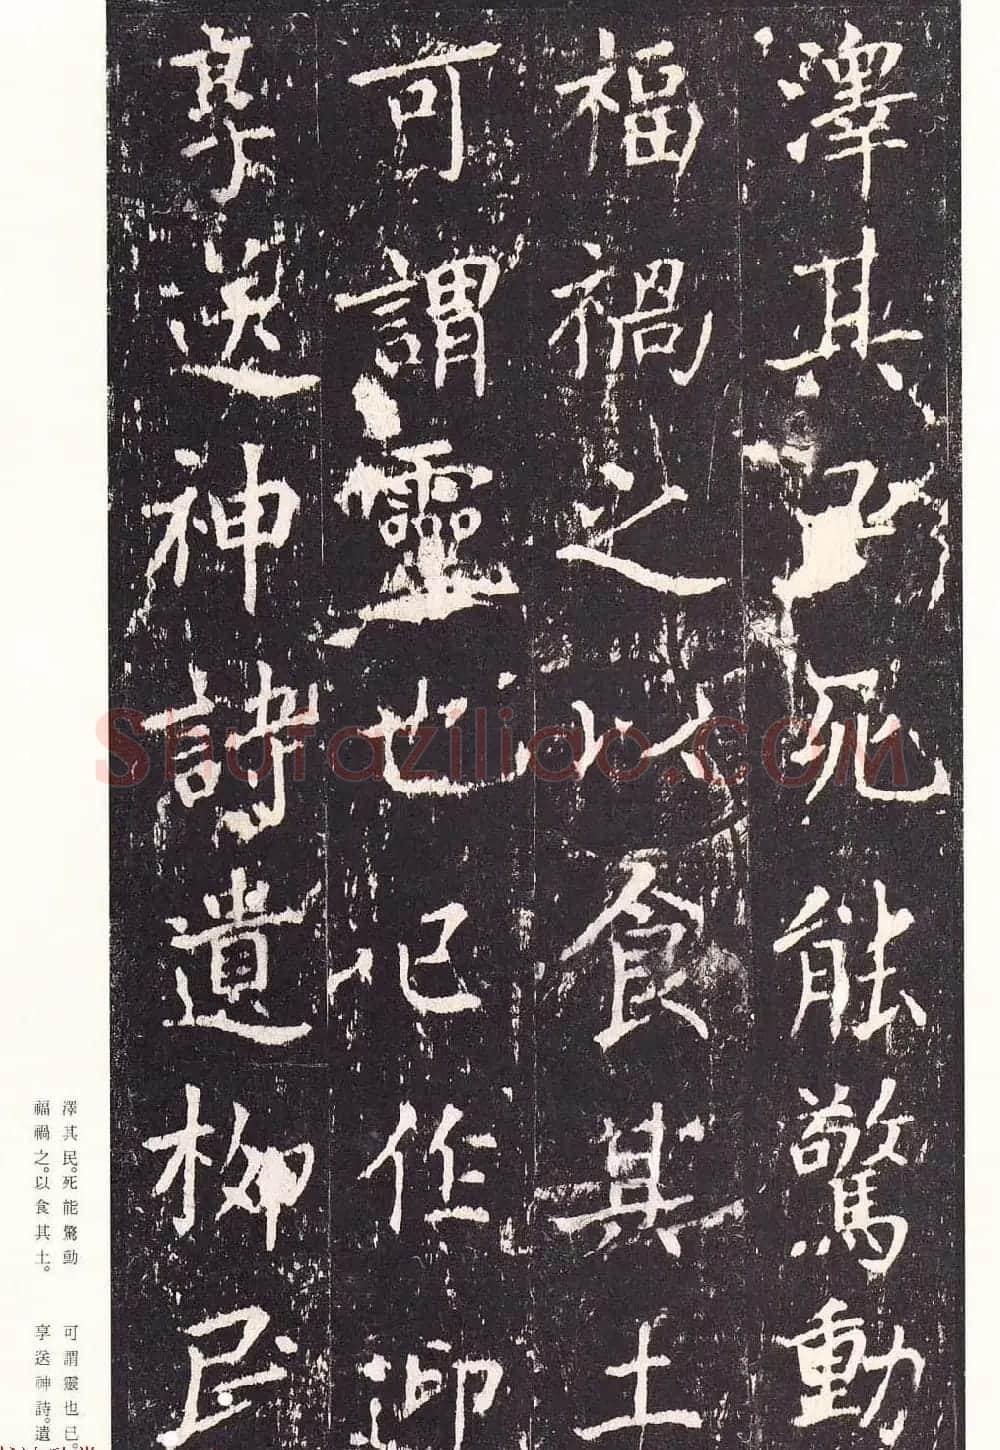 澤其民死能驚動
福禍之以食其土
可謂靈也已作迎
享送神詩遺柳民
澤其民。死能驚動
福禍之。以食其土。
可謂靈也已。
享送神詩。遺
Shufaziliao.com